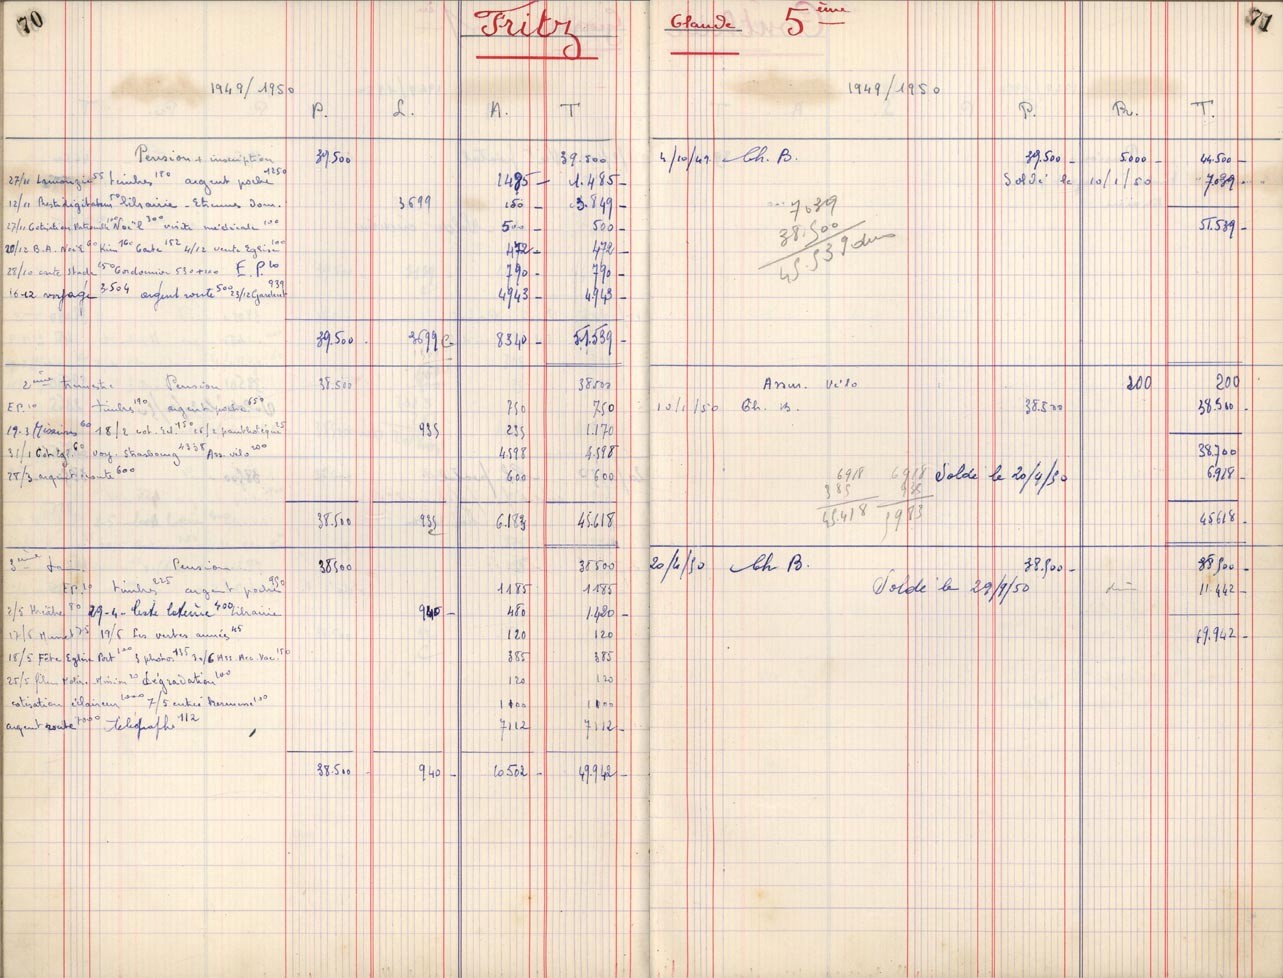 70
Fritz
1949/1950
P. L. A. T
Pension + inscription 39.500 39.500
27/11 55 timbres 180 argent poche 1250 1485 - 1.485 -
12/11 Prestidigitateur 50 librairie - Etienne Dom. 3699 150 - 3.849 -
27/11 Cotisation 100 Noël 300 visite médicale 100 500 - 500 -
20/12 B.A. Noël 60 160 152 4/12 vente Eglise 100 472 - 472 -
28/10 carte stade 150 Cordonnier 530+100 E.P. 10 790 - 790 -
16-12 voyage 3.504 argent route 500 23/12 939 4943 - 4943 -
39.500 - 3699 8340 - 51.539 -
2ème trimestre Pension 38.500 38500
E.P. 10 timbres 90 argent poche 650 750 750
19-3 Missions 60 18/2 150 25/2 25 935 235 1.170
31/1 60 voy. Strasbourg 4338 Ass. vélo 200 4598 4.598
28/3 argent route 600 600 600 -
38.500 935 6.183 45.618
3ème Pension 38500 38500
E.P. 10 timbres 225 argent poche 950 1185 1185
2/5 théâtre 80 29-4- 400 librairie 940 - 480 1.420 -
17/5 75 19/5 Les vertes années 45 120 120
18/5 Fête Eglise Port 100 3 photos 135 30/6 Ass. Acc. Vac. 150 385 385
25/5 film 20 dégradation 100 120 120
cotisation éclaireurs 1000 7/5 entrée 100 1100 1100
argent route 7000 télégraphe 112 7112 7112 -
38.500 - 940 - 10.502 - 49.942 -
Claude 5ème
71
1949/1950
P. Br. T.
4/10/49. Ch. B. 39.500 - 5000 - 44.500 -
Soldé le 10/1/50 7.039 -
51.539 -
7039
38.500
45.539 dus
Assur. vélo 200 200
10/1/50 Ch. B. 38.500 38.500 -
38.700
Soldé le 20/4/50 6.918 -
45618 -
6918 6918
45.418
20/4/50 Ch B. 38.500 - 38.500 -
Soldé le 29/9/50 11.442
49.942 -